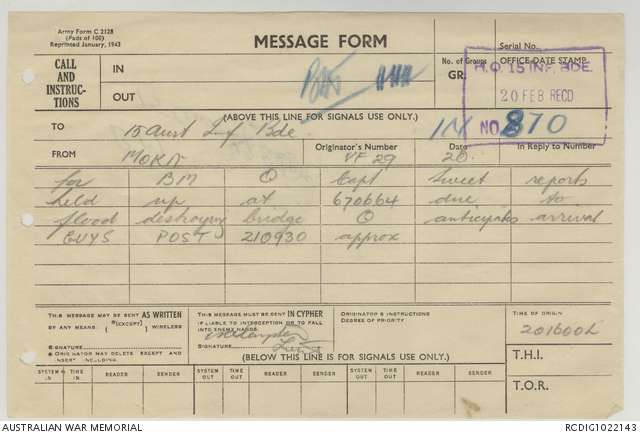 Army Form C 2128
(Pads of 100)
Reprinted January, 1943
MESSAGE FORM
Serial No.
CALL AND INSTRUC-TIONS
IN
OUT
No. of Groups
GR.
OFFICE DATE STAMP
H.Q. 15 INF. BDE.
20 FEB RECD
IN No. 870
(ABOVE THIS LINE FOR SIGNALS USE ONLY.)
TO 15 Aust Inf Bde.
FROM
Originator's Number
VF 29
Date
20.
In Reply to Number
for BM O Capt Sweet reports
held up at 670664 due to
flood destroying bridge O anticipates arrival
GUYS POST 210930 approx
THIS MESSAGE MAY BE SENT AS WRITTEN
BY ANY MEANS. (*(EXCEPT) ) WIRELESS
SIGNATURE
* ORIGINATOR MAY DELETE EXCEPT AND INSERT INCLUDING.
THIS MESSAGE MUST BE SENT IN CYPHER
IF LIABLE TO INTERCEPTION OR TO FALL INTO ENEMY HANDS.
SIGNATURE
ORIGINATOR'S INSTRUCTIONS
DEGREE OF PRIORITY
TIME OF ORIGIN
201600L
T.H.I.
T.O.R.
(BELOW THIS LINE IS FOR SIGNALS USE ONLY.)
SYSTEM IN
TIME IN
READER
SENDER
SYSTEM OUT
TIME OUT
READER
SENDER
SYSTEM OUT
TIME OUT
READER
SENDER
AUSTRALIAN WAR MEMORIAL
RCDIG1022143